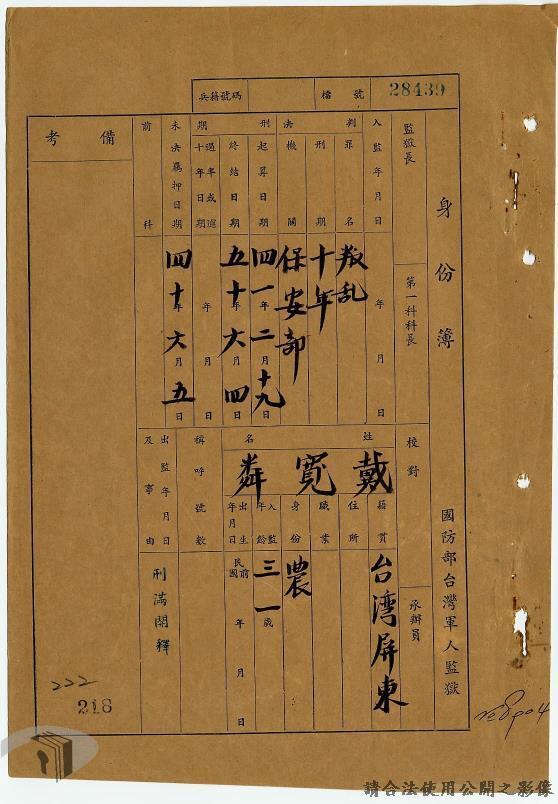 28439
檔號
兵籍號碼
身份簿
國防部台灣軍人監獄
監獄長
第一科科長
校對
承辦員
入監年月日
年 月 日
判決
罪名 叛乱
刑期 十年
機關 保安部
刑期
起算日期 四一年二月十九日
終結日期 五十年六月四日
年 月 日
未決羈押日期 四十年六月五日
前科
備考
姓名 戴寬粦
籍貫 台湾屏東
住所
職業
身份 農
入監年齡 三一歲
出生年月日 民前國 年 月 日
稱呼號數
出監年月日及事由 刑滿開釋
222
218
請合法使用公開之影像